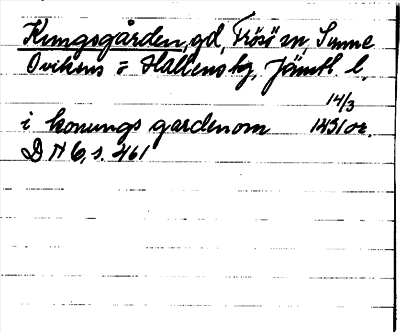 Kungsgården, gd, Frösö sn, Sunne
Ovikens o Hallens hg, Jämtl. l.
14/3
i konungs gardenom 1431 or.
DN 6, s. 461